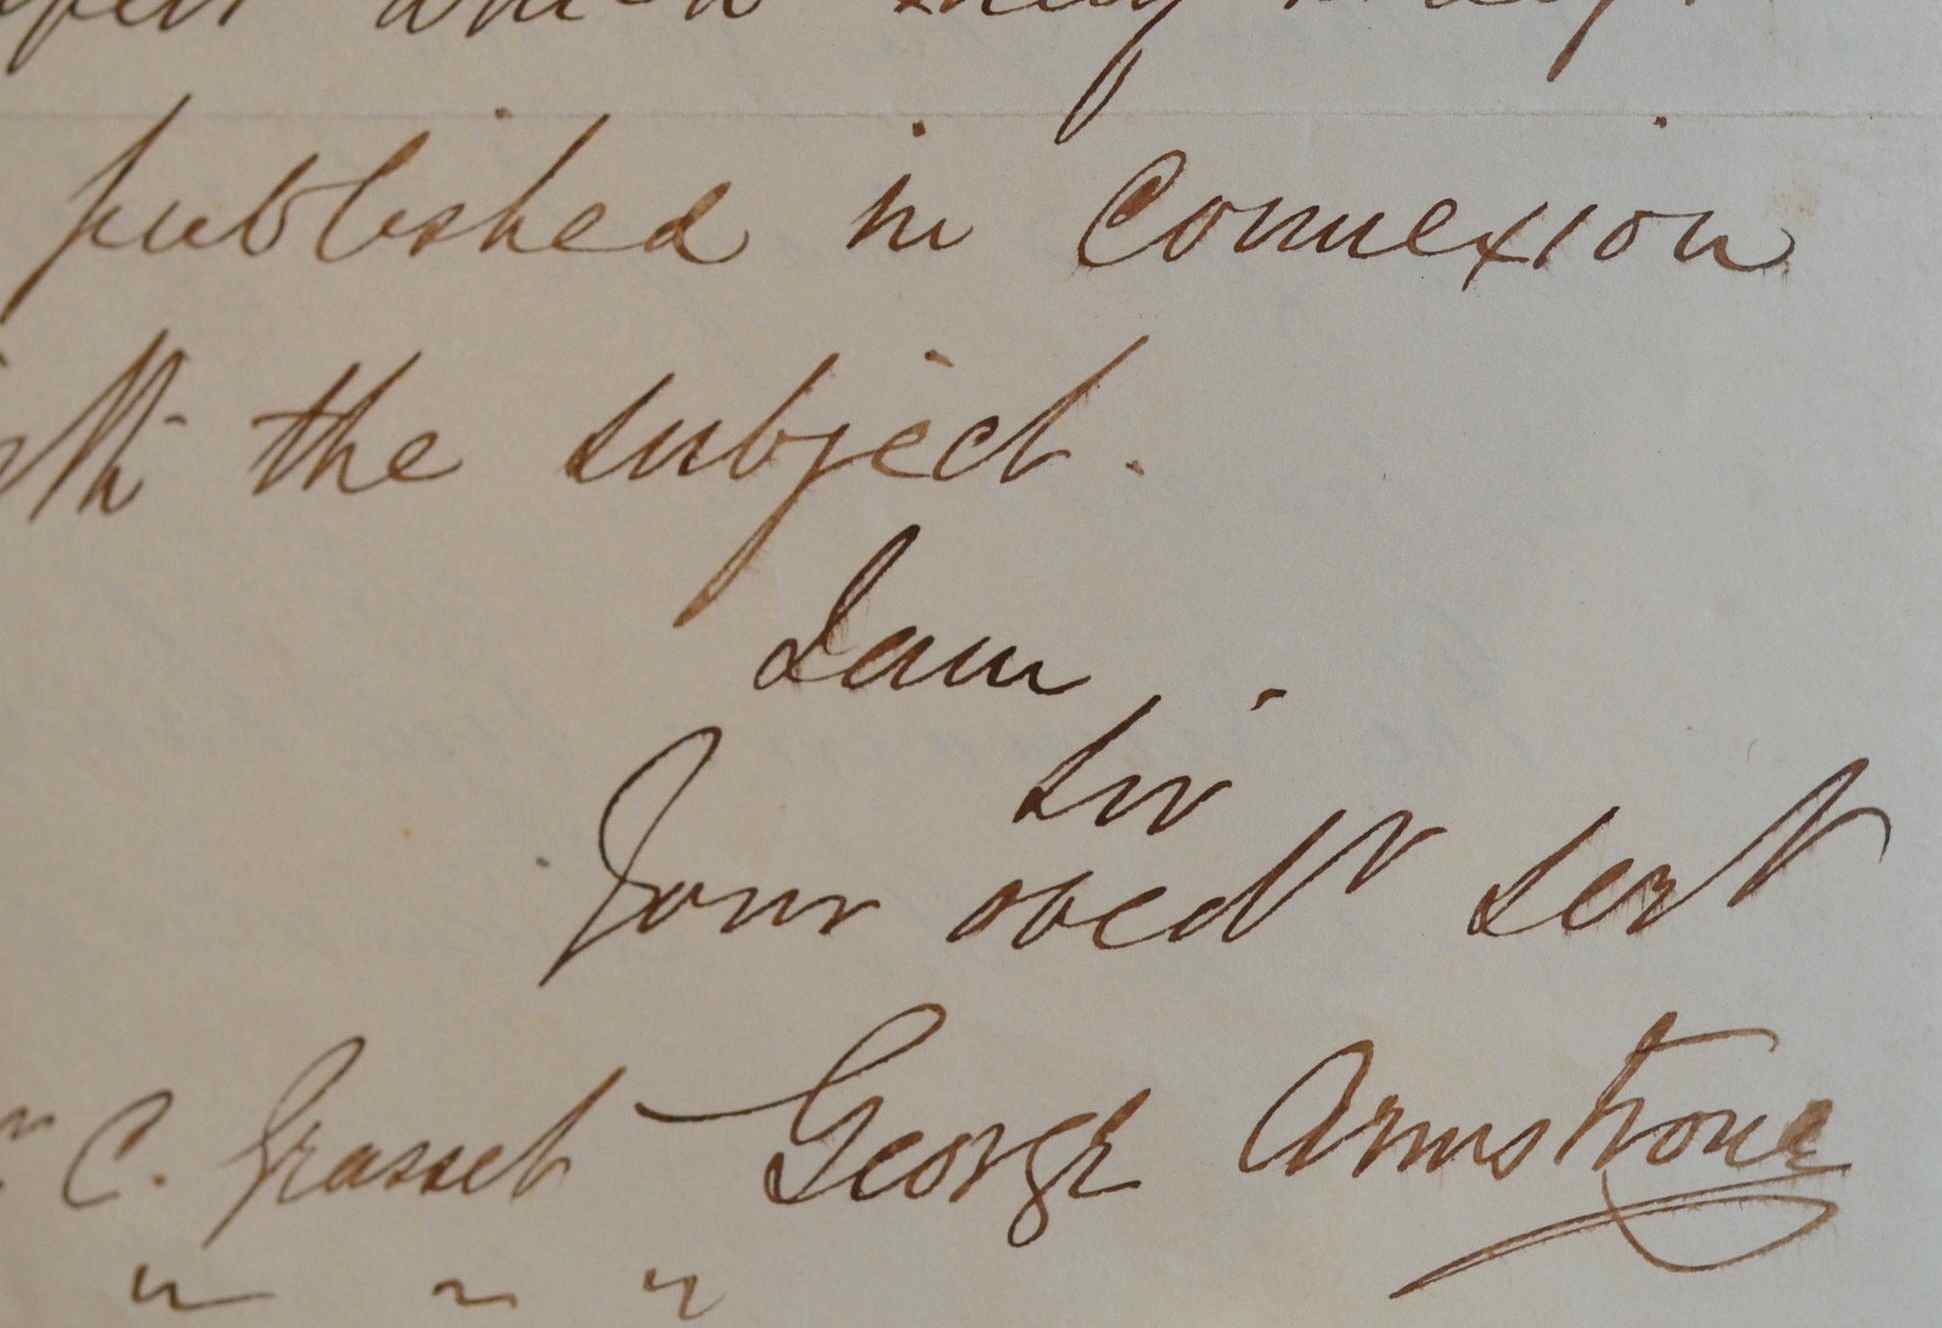 which may
published in Connexion
the subject.
I am
Sir
Your obedt Servt
C. Grasset George Armstrong
" " "